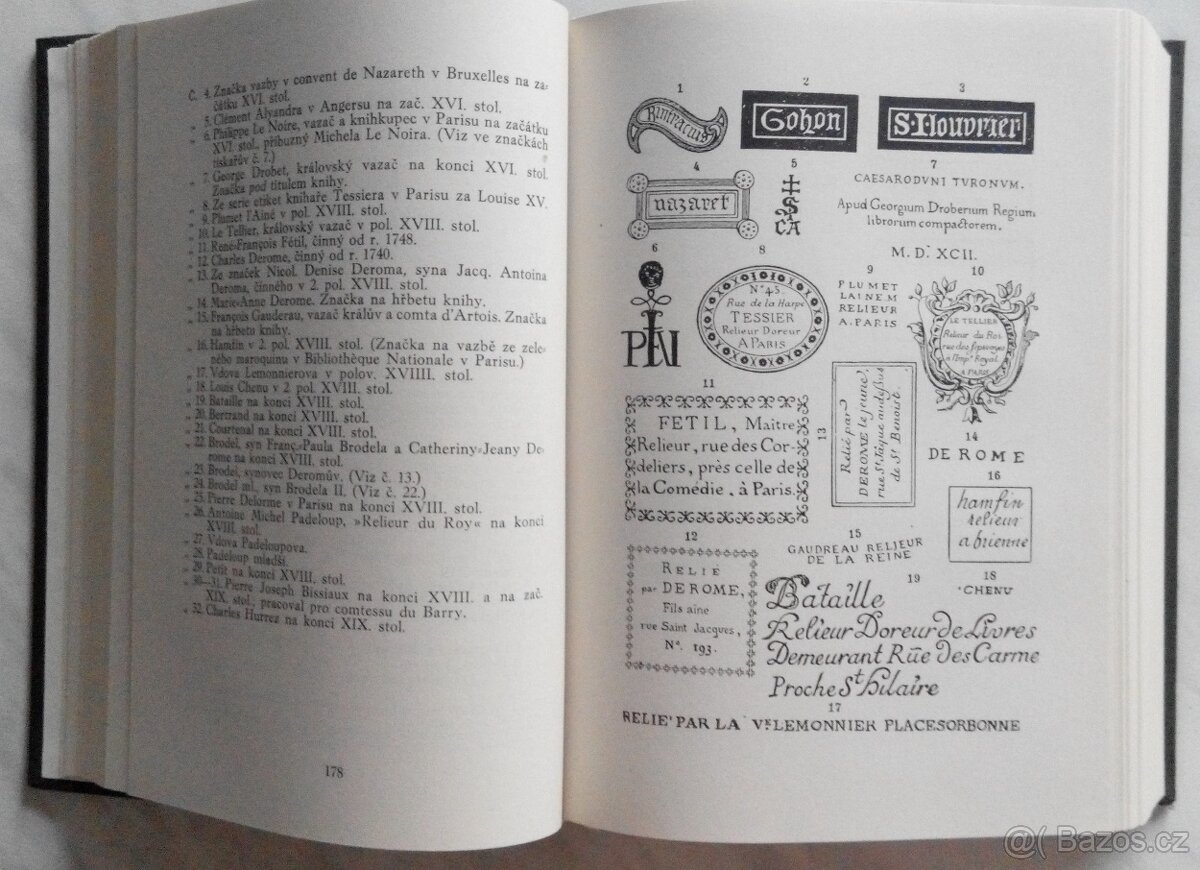 Č. 4. Značka vazby v convent de Nazareth v Bruxelles na za-
čátku XVI. stol.
„ 5. Clément Alyandra v Angersu na zač. XVI. stol.
„ 6. Philippe Le Noire, vazač a knihkupec v Parisu na začátku
XVI. stol., příbuzný Michela Le Noira. (Viz ve značkách
tiskařův č. 7.)
„ 7. George Drobet, královský vazač na konci XVI. stol.
Značka pod titulem knihy.
„ 8. Ze serie etiket knihaře Tessiera v Parisu za Louise XV.
„ 9. Plumet l'Ainé v pol. XVIII. stol.
„ 10. Le Tellier, královský vazač v pol. XVIII. stol.
„ 11. René-François Fétil, činný od r. 1748.
„ 12. Charles Derome, činný od r. 1740.
„ 13. Ze značek Nicol. Denise Deroma, syna Jacq. Antoina
Deroma, činného v 2. pol. XVIII. stol.
„ 14. Marie-Anne Derome. Značka na hřbetu knihy.
„ 15. François Gauderau, vazač králův a comta d'Artois. Značka
na hřbetu knihy.
„ 16. Hamfin v 2. pol. XVIII. stol. (Značka na vazbě ze zele-
ného maroquinu v Bibliothèque Nationale v Parisu.)
„ 17. Vdova Lemonnierova v polov. XVIIII. stol.
„ 18. Louis Chenu v 2. pol. XVIII. stol.
„ 19. Bataille na konci XVIII. stol.
„ 20. Bertrand na konci XVIII. stol.
„ 21. Courtenal na konci XVIII. stol.
„ 22. Brodel, syn Franç.-Paula Brodela a Catheriny-Jeany De-
rome na konci XVIII. stol.
„ 23. Brodel, synovec Deromův. (Viz č. 13.)
„ 24. Brodel ml., syn Brodela II. (Viz č. 22.)
„ 25. Pierre Delorme v Parisu na konci XVIII. stol.
„ 26. Antoine Michel Padeloup, »Relieur du Roy« na konci
XVIII. stol.
„ 27. Vdova Padeloupova.
„ 28. Padeloup mladší.
„ 29. Petit na konci XVIII. stol.
„ 30—31. Pierre Joseph Bissiaux na konci XVIII. a na zač.
XIX. stol., pracoval pro comtessu du Barry.
„ 32. Charles Hurrez na konci XIX. stol.
178
1
2
Gohon
3
S. Houvrier
4
nazaret
5
7
CAESARODVNI TVRONVM.
Apud Georgium Droberium Regium
librorum compactorem.
M. D. XCII.
6
8
N° 45
Rue de la Harpe
TESSIER
Relieur Doreur
A PARIS
9
PLUMET
LAINEM
RELIEUR
A. PARIS
10
LE TELLIER
Relieur du Roi
A PARIS
11
FETIL, Maitre
Relieur, rue des Cor-
deliers, près celle de
la Comédie, à Paris.
13
Relié par
DEROME le jeune,
rue St Jaque audessus
de St Benoist.
14
DE ROME
16
hamfin
relieur
a brienne
12
RELIE
par DEROME,
Fils aine
rue Saint Jacques,
N°. 193.
15
GAUDREAU RELJEUR
DE LA REINE
18
CHENU
19
Bataille
Relieur Doreur de Livres
Demeurant Rüe des Carme
Proche St hilaire
17
RELIE' PAR LA Ve LEMONNIER PLACE SORBONNE
@( Bazos.cz